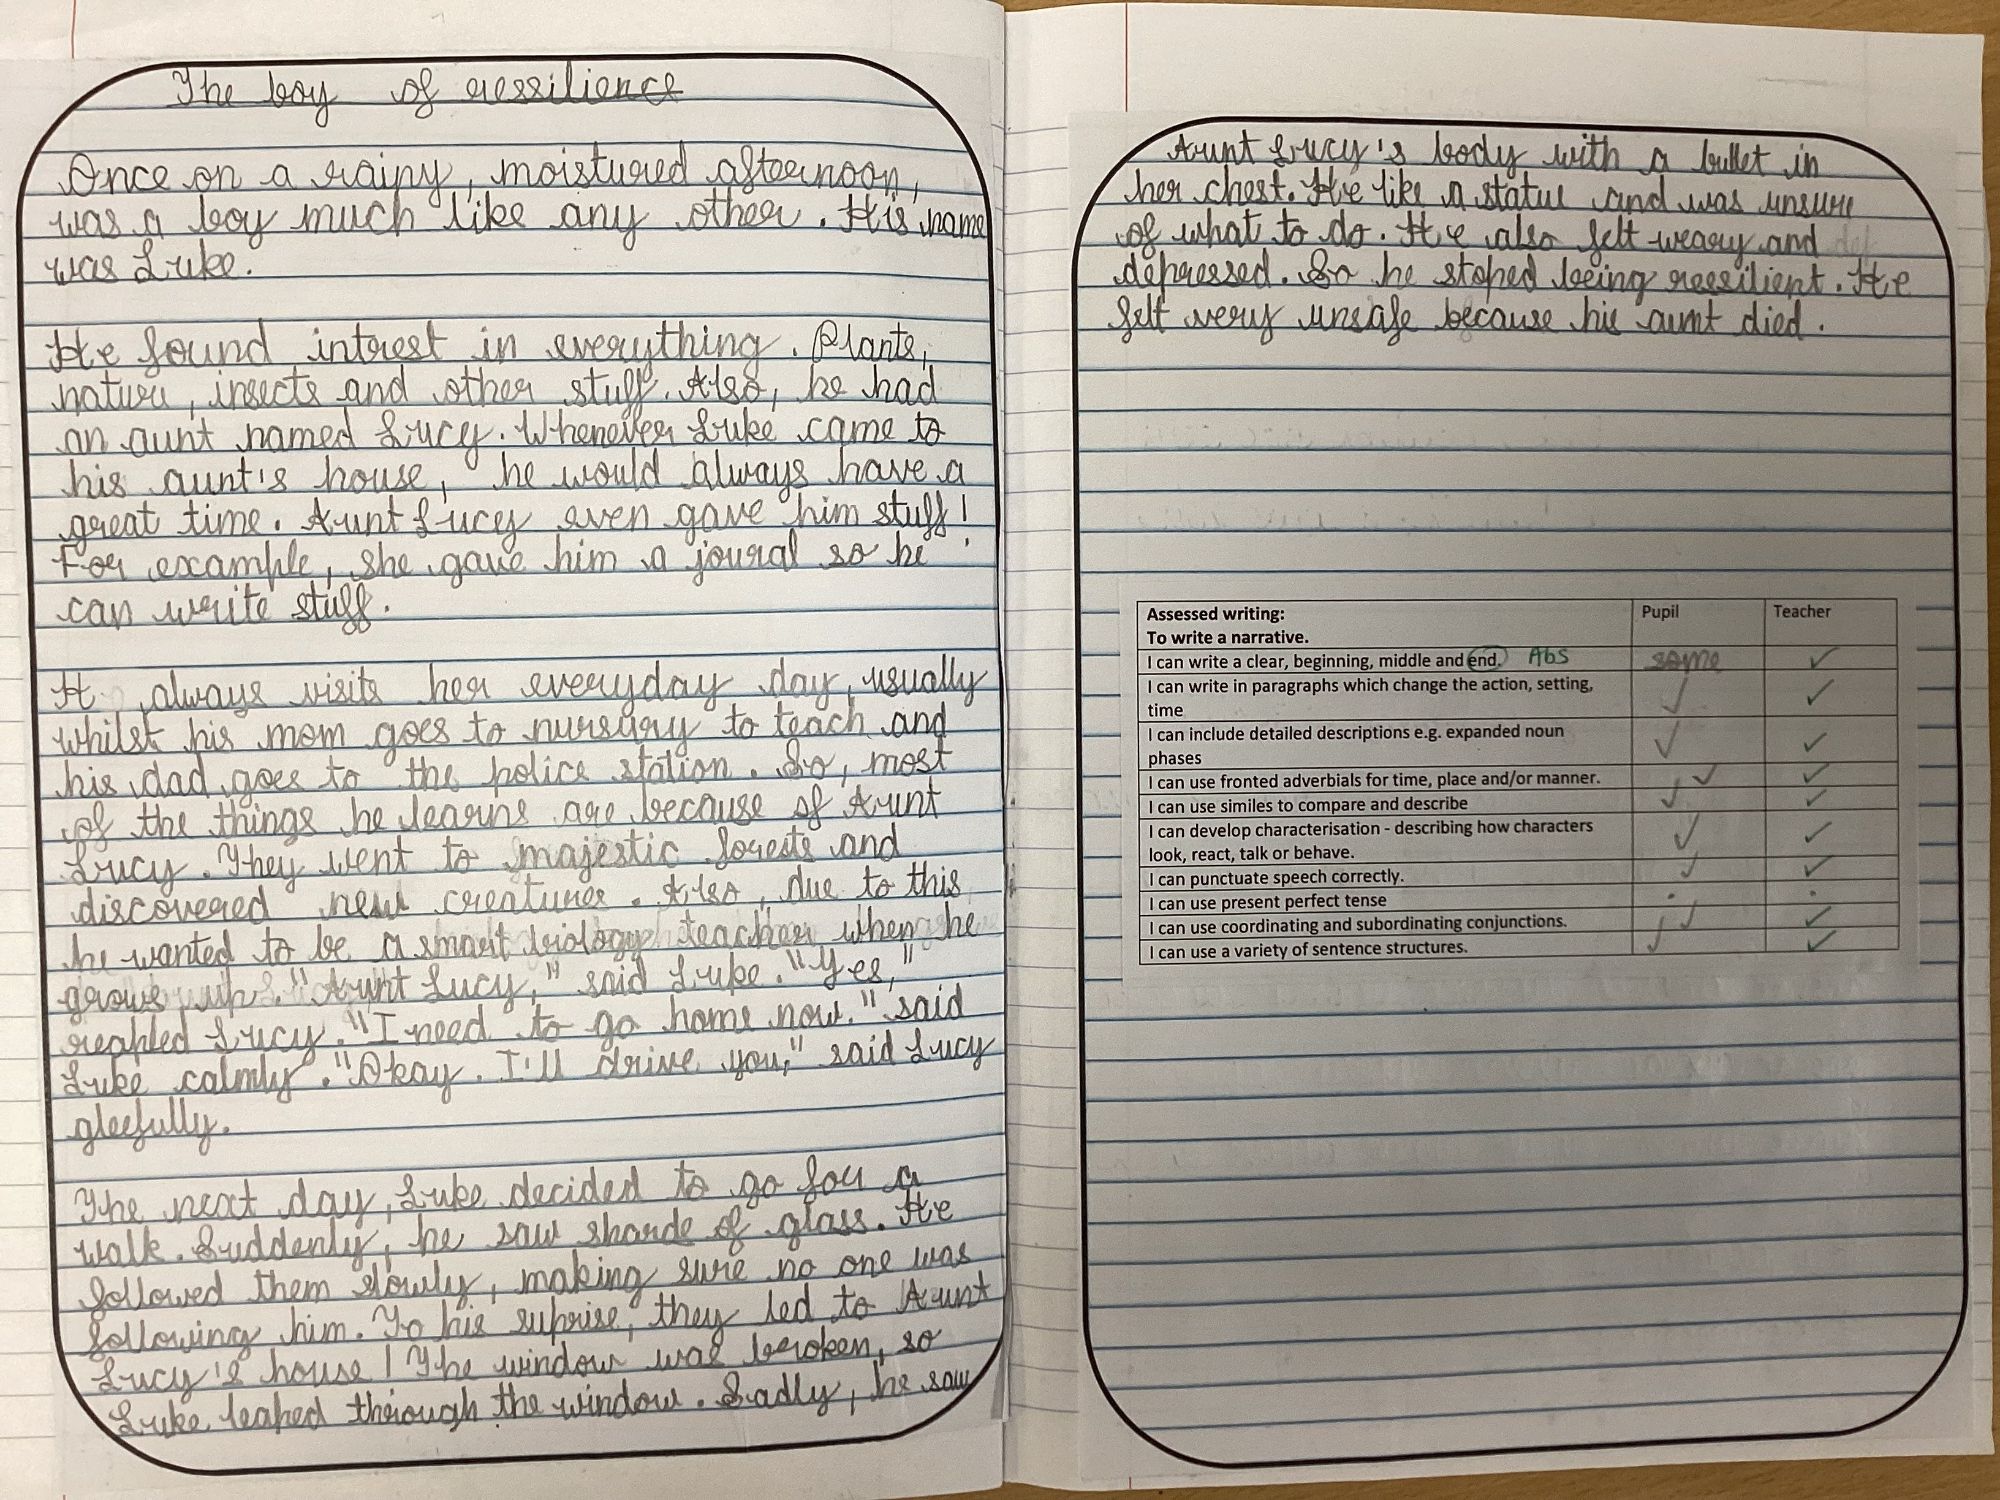 The boy of ressilience
Once on a rainy, moistured afternoon,
was a boy much like any other. His name
was Luke.
He found intrest in everything. Plants,
nature, insects and other stuff. Also, he had
an aunt named Lucy. Whenever Luke came to
his aunt's house, he would always have a
great time. Aunt Lucy even gave him stuff!
For example, she gave him a joural so he
can write stuff.
H always visits her everyday day, usually
whilst his mom goes to nursury to teach and
his dad goes to the police station. So, most
of the things he learns are because of Aunt
Lucy. They went to majestic forests and
discovered new creatures. Also, due to this
he wanted to be a smart biology teacher when he
grows up. "Aunt Lucy," said Luke. "Yes,"
reapled Lucy. "I need to go home now." said
Luke calmly. "Okay. I'll drive you," said Lucy
gleefully.
The next day, Luke decided to go for a
walk. Suddenly, he saw shards of glass. He
followed them slowly, making sure no one was
following him. To his suprise, they led to Aunt
Lucy's house! The window was broken, so
Luke leaped through the window. Sadly, he saw
Aunt Lucy's body with a bullet in
her chest. He like a statue and was unsure
of what to do. He also felt weary and
depressed. So he stoped being ressilient. He
felt very unsafe because his aunt died.
Assessed writing: Pupil Teacher
To write a narrative.
I can write a clear, beginning, middle and end. Abs some ✓
I can write in paragraphs which change the action, setting,
time ✓ ✓
I can include detailed descriptions e.g. expanded noun
phases ✓ ✓
I can use fronted adverbials for time, place and/or manner. ✓ ✓
I can use similes to compare and describe ✓ ✓
I can develop characterisation - describing how characters
look, react, talk or behave. ✓ ✓
I can punctuate speech correctly. ✓ ✓
I can use present perfect tense . .
I can use coordinating and subordinating conjunctions. ✓ ✓
I can use a variety of sentence structures. ✓ ✓